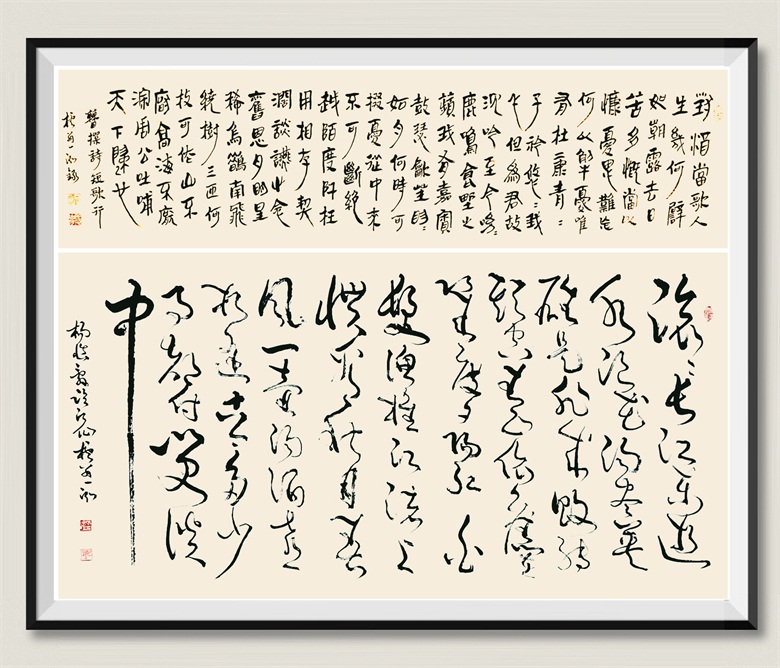 對酒當歌人
生幾何譬
如朝露去日
苦多慨當以
慷憂思難忘
何以解憂唯
有杜康青〻
子衿悠〻我
心但為君故
沉吟至今呦〻
鹿鳴食野之
蘋我有嘉賓
鼓瑟吹笙明〻
如月何時可
掇憂從中來
不可斷絕
越陌度阡枉
用相存契
濶談讌心念
舊恩月明星
稀烏鵲南飛
繞樹三匝何
枝可依山不
厭高海不厭
深周公吐哺
天下歸心
曹操詩短歌行
滾〻長江東逝
水浪花淘盡英
雄是非成敗轉
頭空青山依舊在
幾度夕陽紅白
髮漁樵江渚上
慣看秋月春
風一壺濁酒喜
相逢古今多少
事都付笑談
中
楊慎詞臨江仙